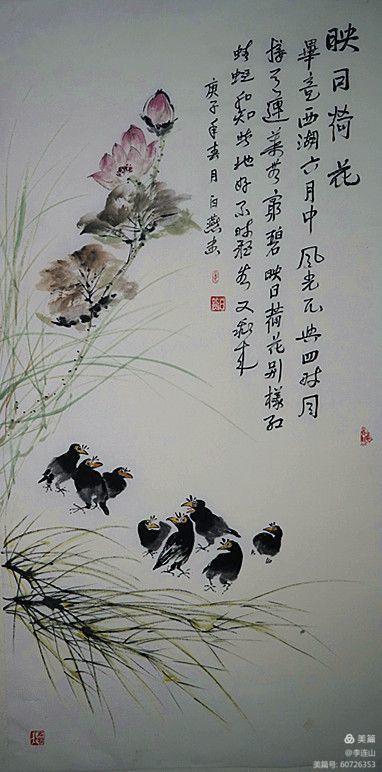 映日荷花
畢竟西湖六月中風光不與四时同
接天蓮葉無窮碧映日荷花别樣红
蜻蜓知此地好不时又来
庚子年春月白燕画
美篇
@李连山
美篇号: 60726353